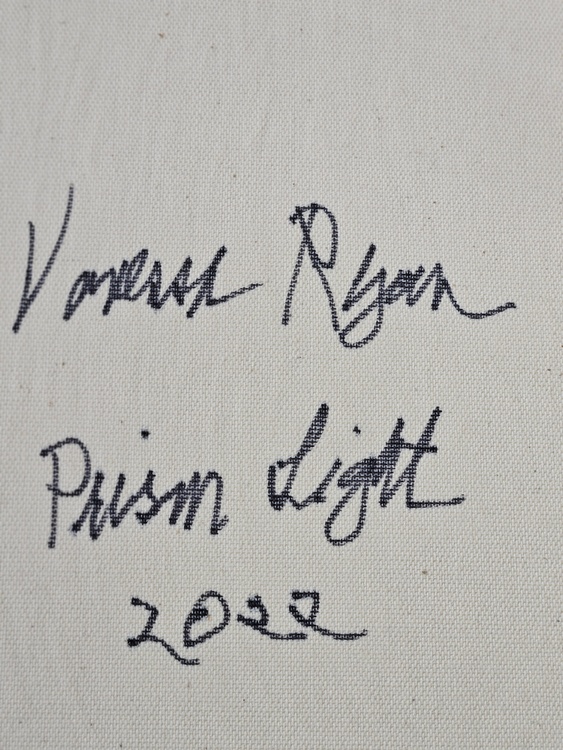 Vanessa Ryan
Prism Light
2022